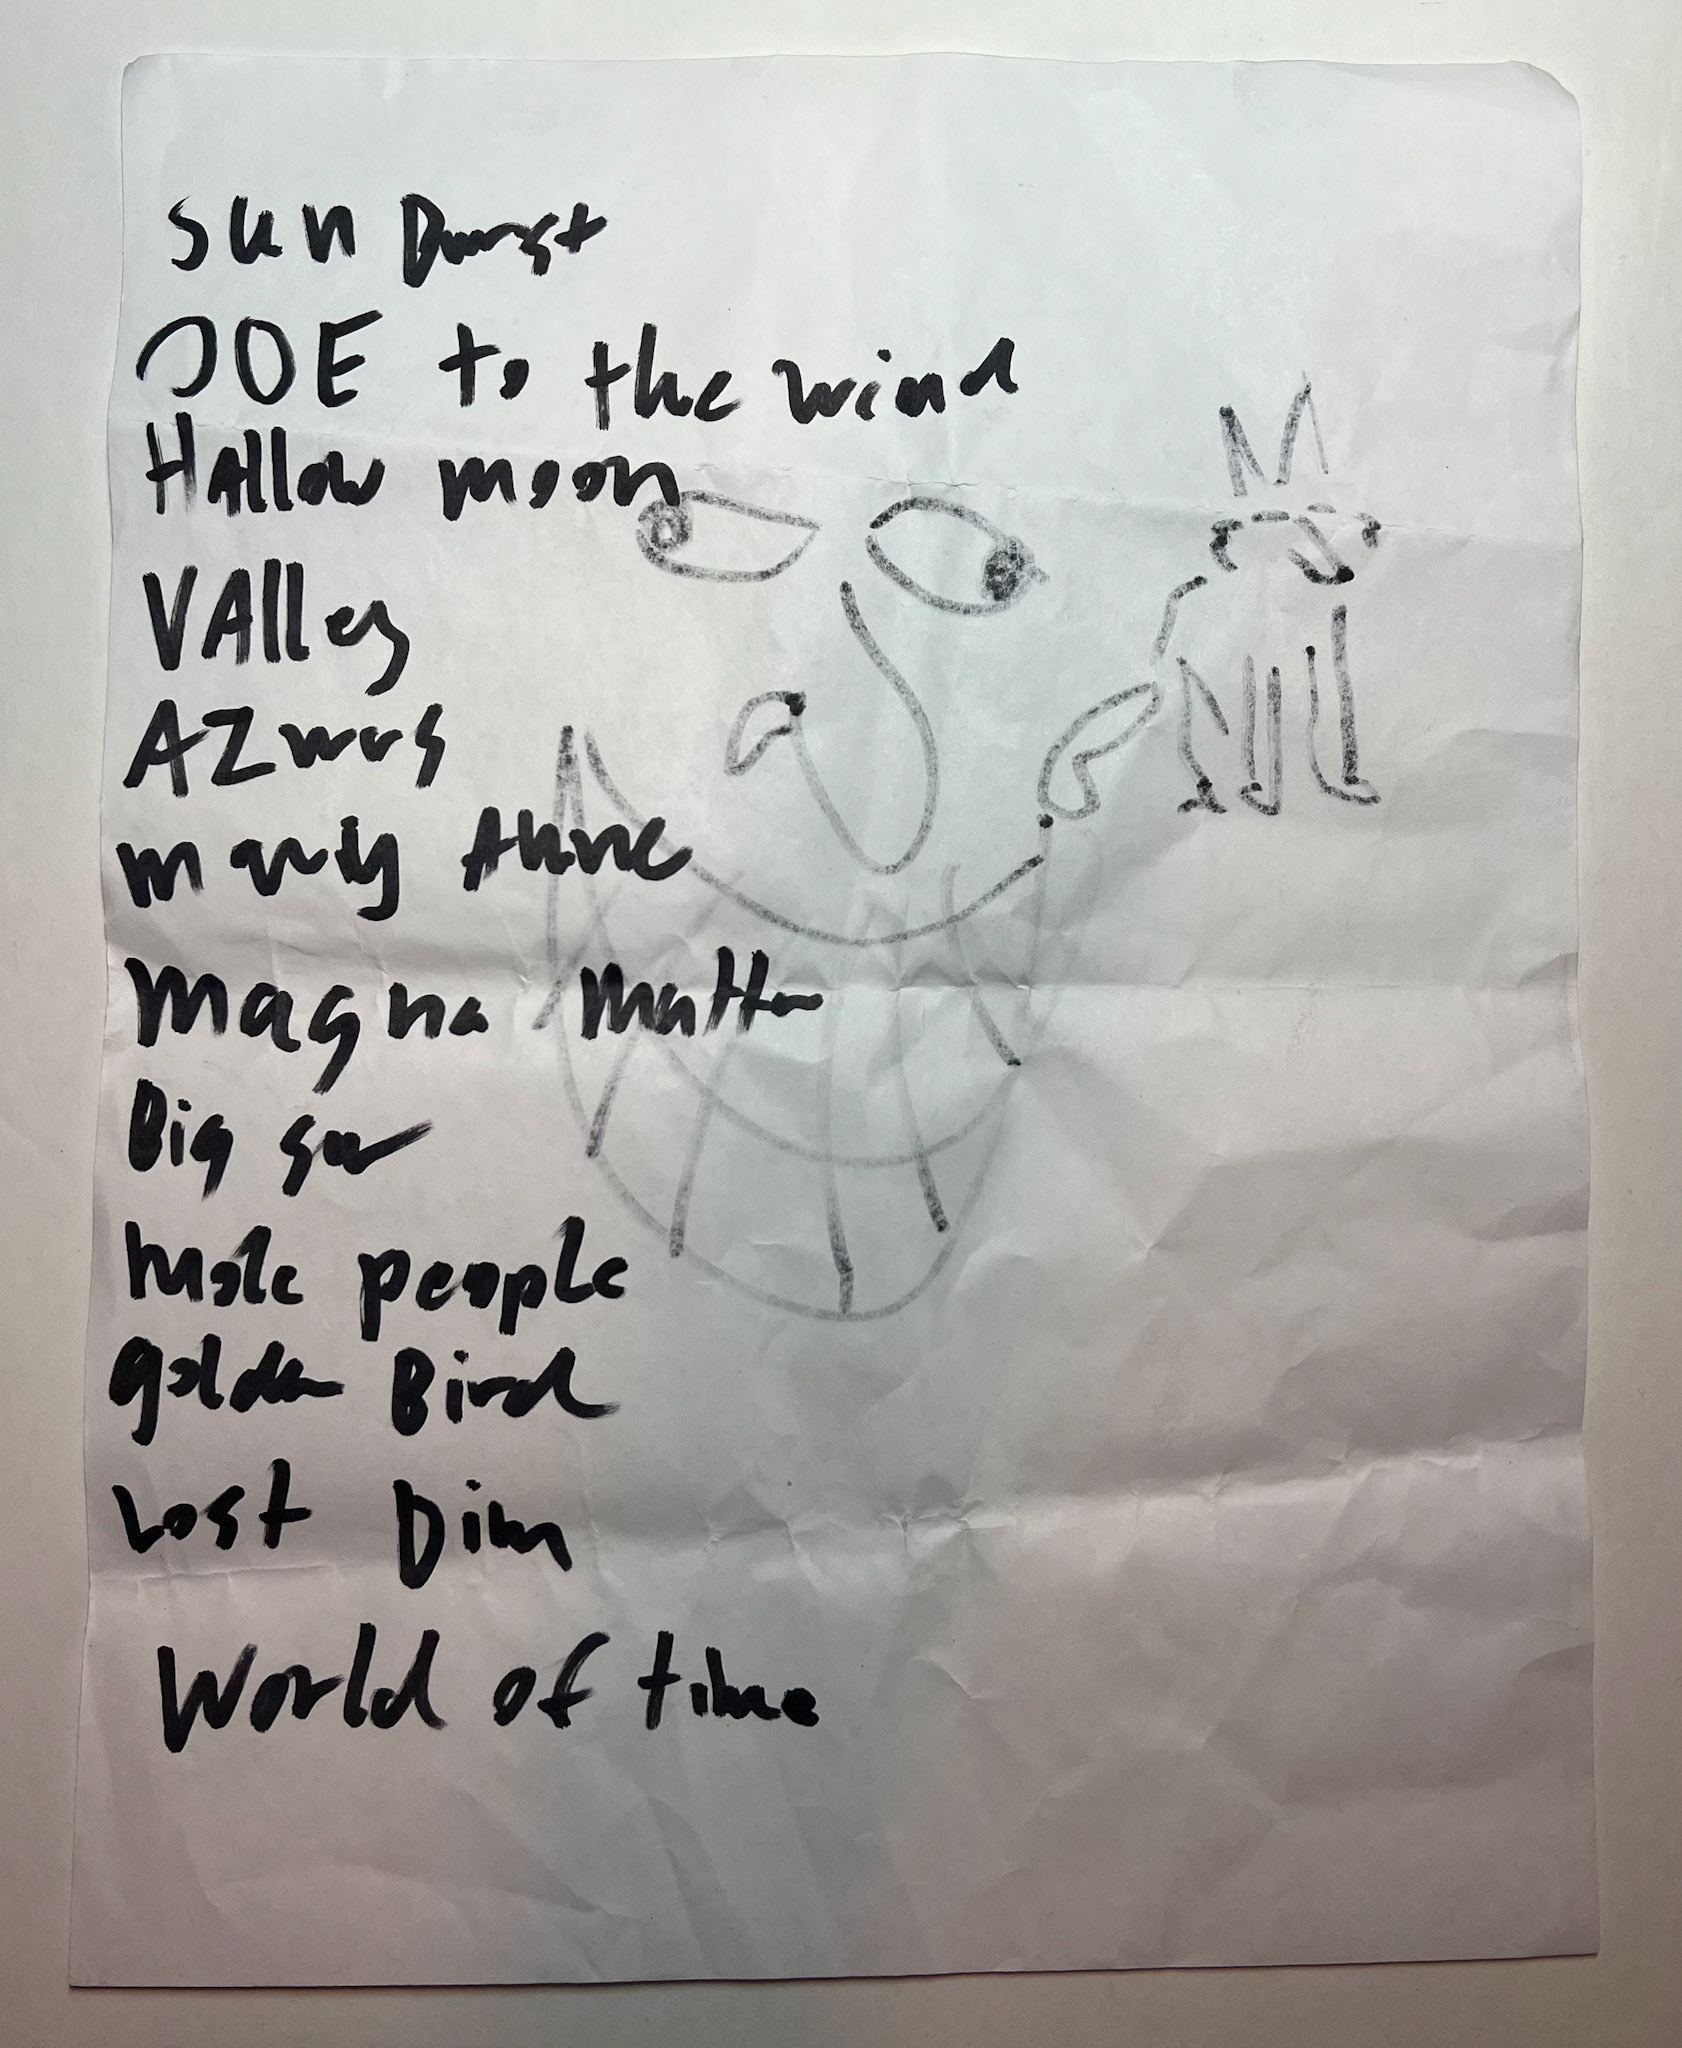 Sun Burst
JOE to the wind
Hallow moon
VAlley
AZurus
Magna Matter
Big Sur
mole people
golden Bird
Lost Dim
World of time